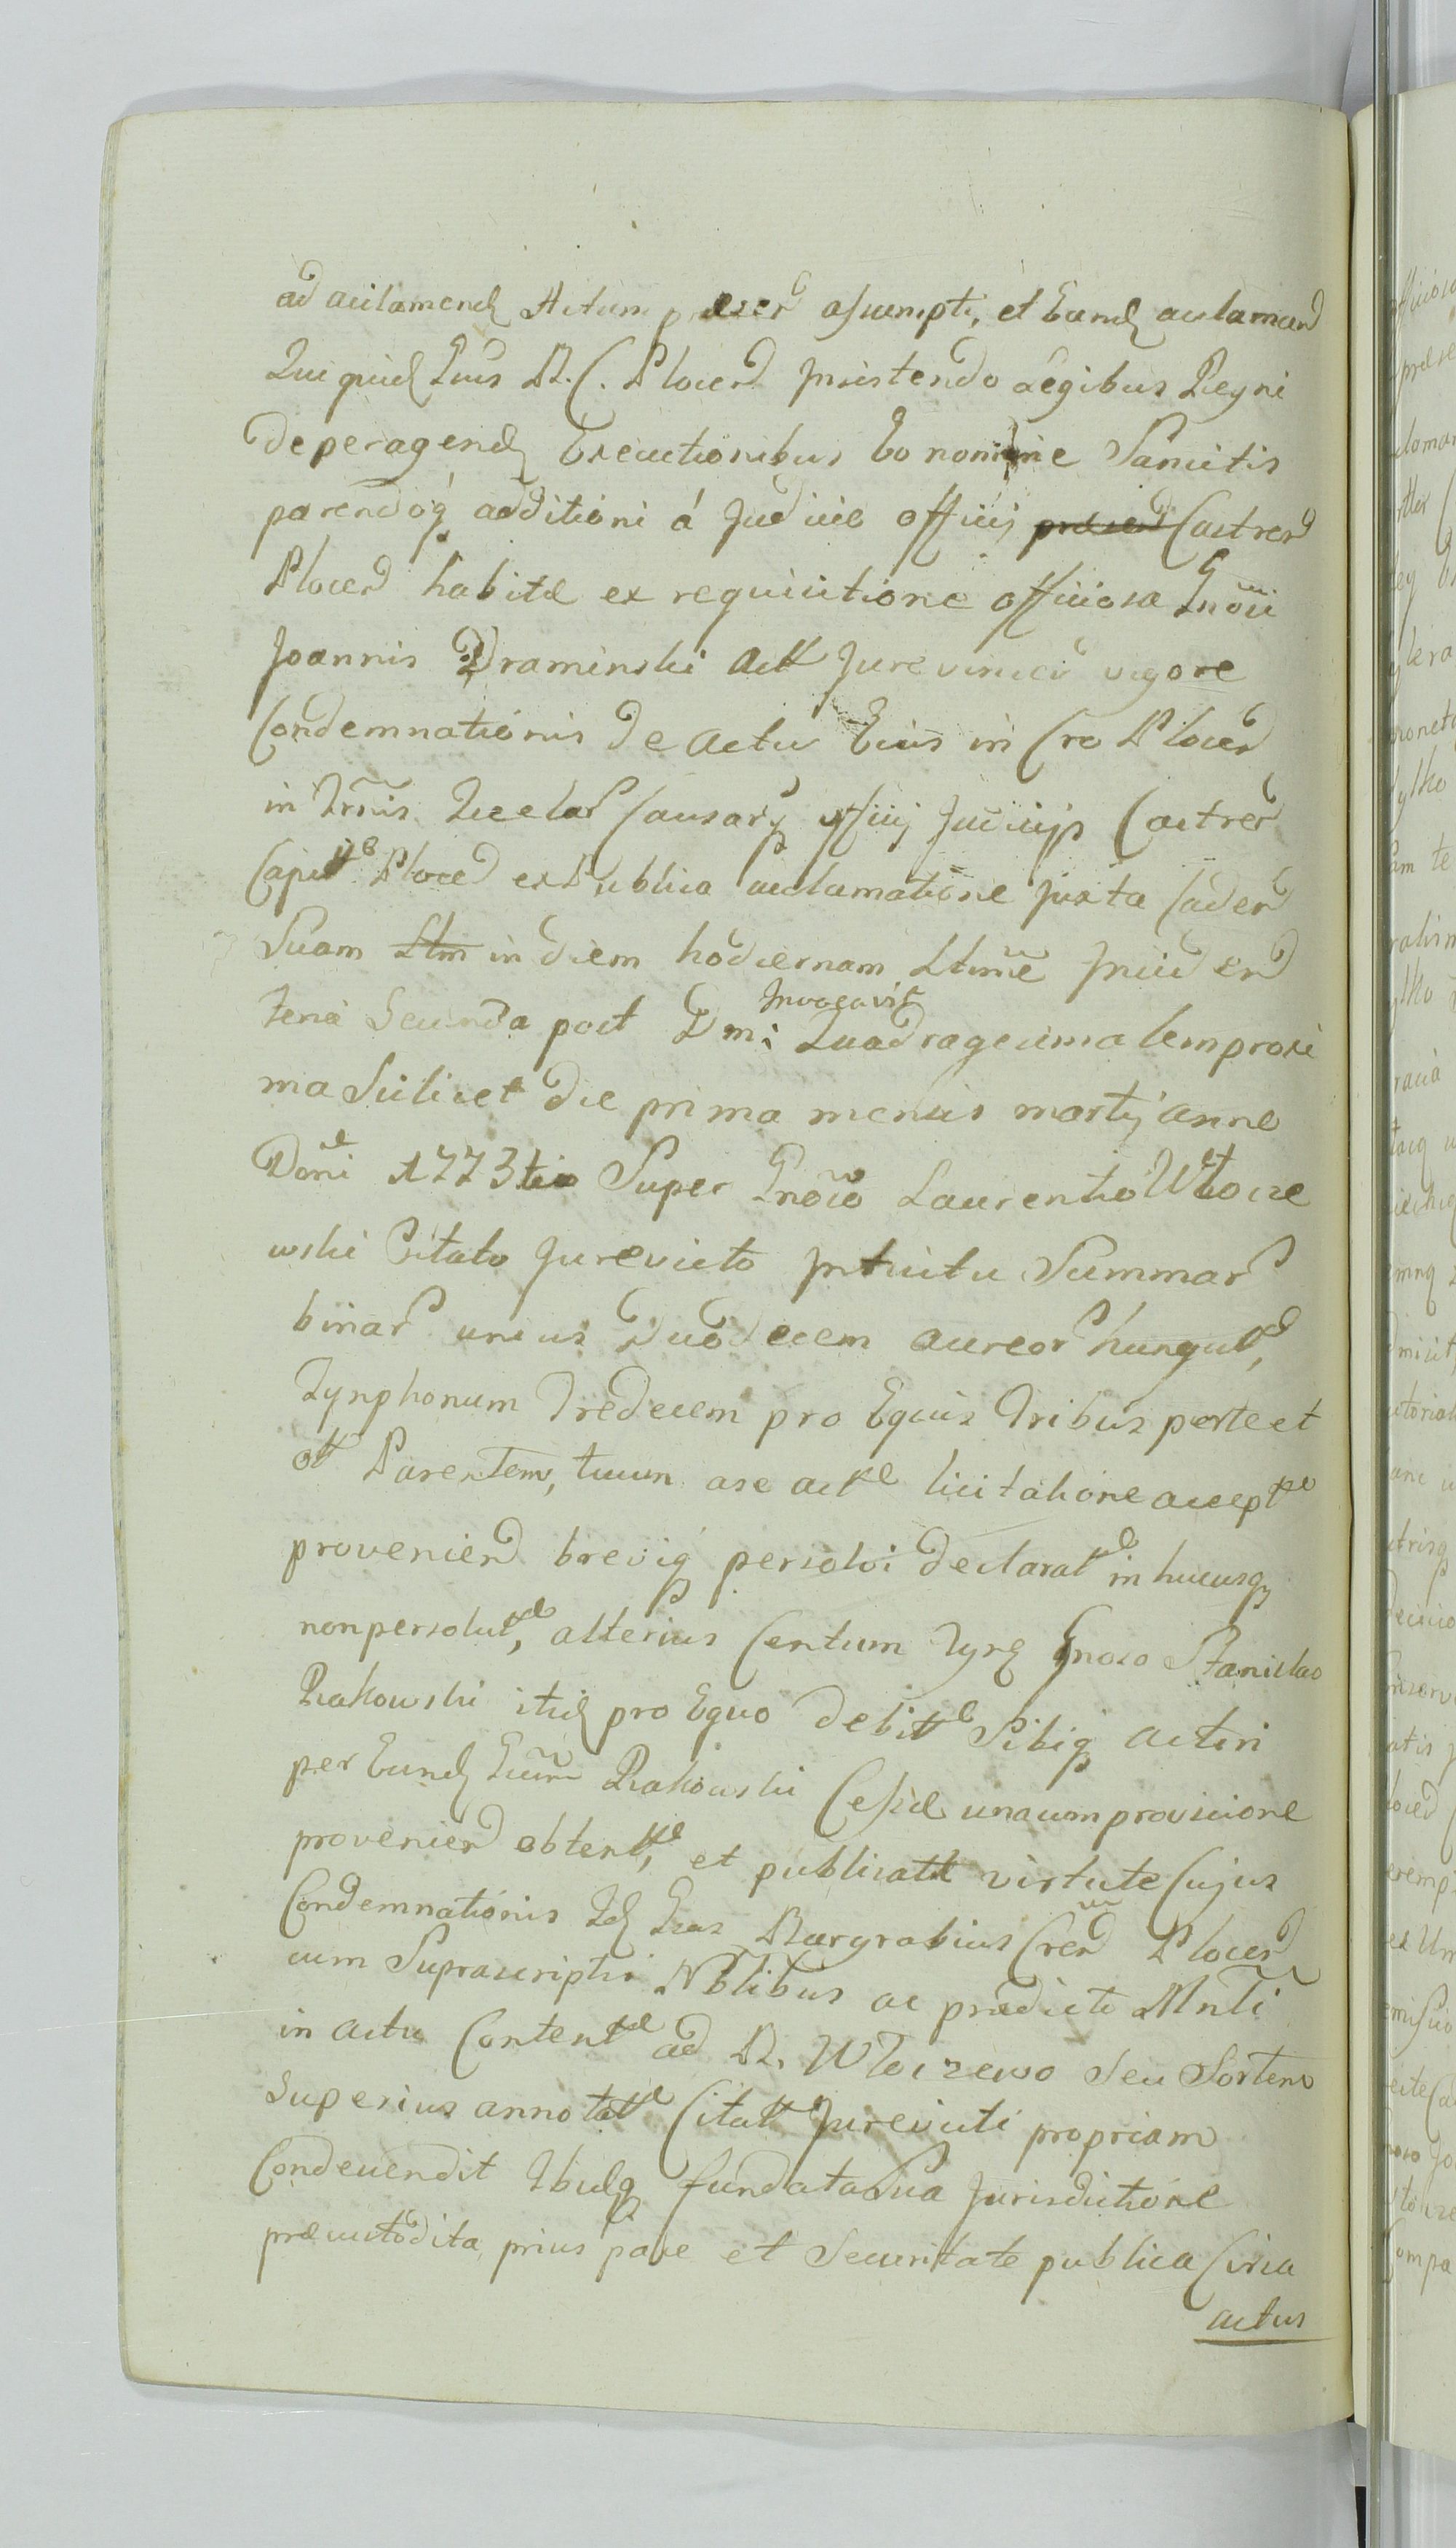 ad acclamand Actum præsen assumpti, et Eund acclamand
Qui quid Gnus B. C. Plocen Insistendo Legibus Regni
de peragend Executionibus Eo nomine Sancitis
parendoq additioni á Judicio officij præsen Castren
Plocen habitæ ex requisitione officiosa Gnosi
Joannis Draminski Act Jurevinci vigore
Condemnationis de actu Eius in Cro Plocen
in Trmis Querelar Causarq officij Judicijs Castren
Capitlb Plocen ex Publica acclamatione Juxta Caden
Suam Ltm in diem hodiernam Ltimē Inciden
Feria Secunda post Dm: Invocavit Quadragesimalem proxi
ma Scilicet die prima mensis martij anno
Domi 1773tio Super Gnoso Laurentio Włocze
wski Citato Jurevicto Intuitu Summar
binar unius Duodecem aureor hungall,
Tynphonum Tredecem pro Equis Tribus per te et
olt Parentem, tuum a se actæ licitatione acceptæ
provenien brevig persolvi declaratæ in hucusq
non persolutæ, alterius Centum Tynf Gnoso Stanislao
Rakowski itid pro Equo debitæ Sibiq actori
per Eund Gnum Rakowski Cessæ unacum provisione
provenien obtentæ, et publicatæ virtute Cujus
Condemnationis Id Gnus Burgrabius Cren Plocen
cum Suprascriptis Nblibus ac prædicto Mnlī
in actu Contentæ ad B. Włoczewo Seu Sortem
Superius annotatæ Citatt Jurevicti propriam
Condescendit Ibidq fundata Sua Jurisdictione
præcustodita prius pace et Securitate publica Circa
actus